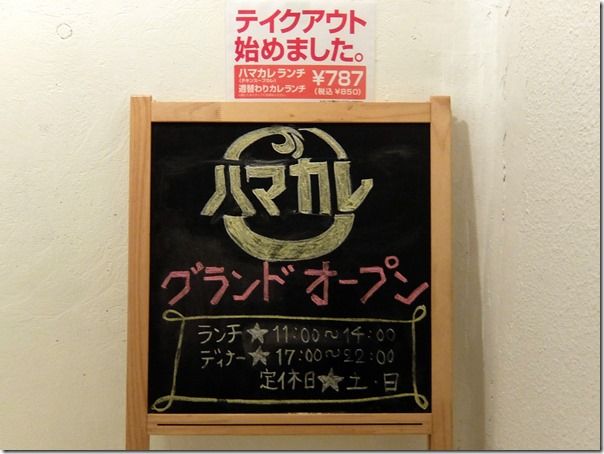 テイクアウト
始めました。
ハマカレランチ
(チキンスープカレー)
週替わりカレランチ
¥787
(税込 ¥850)
ハマカレ
グランドオープン
ランチ★11:00〜14:00
ディナー★17:00〜22:00
定休日★土・日